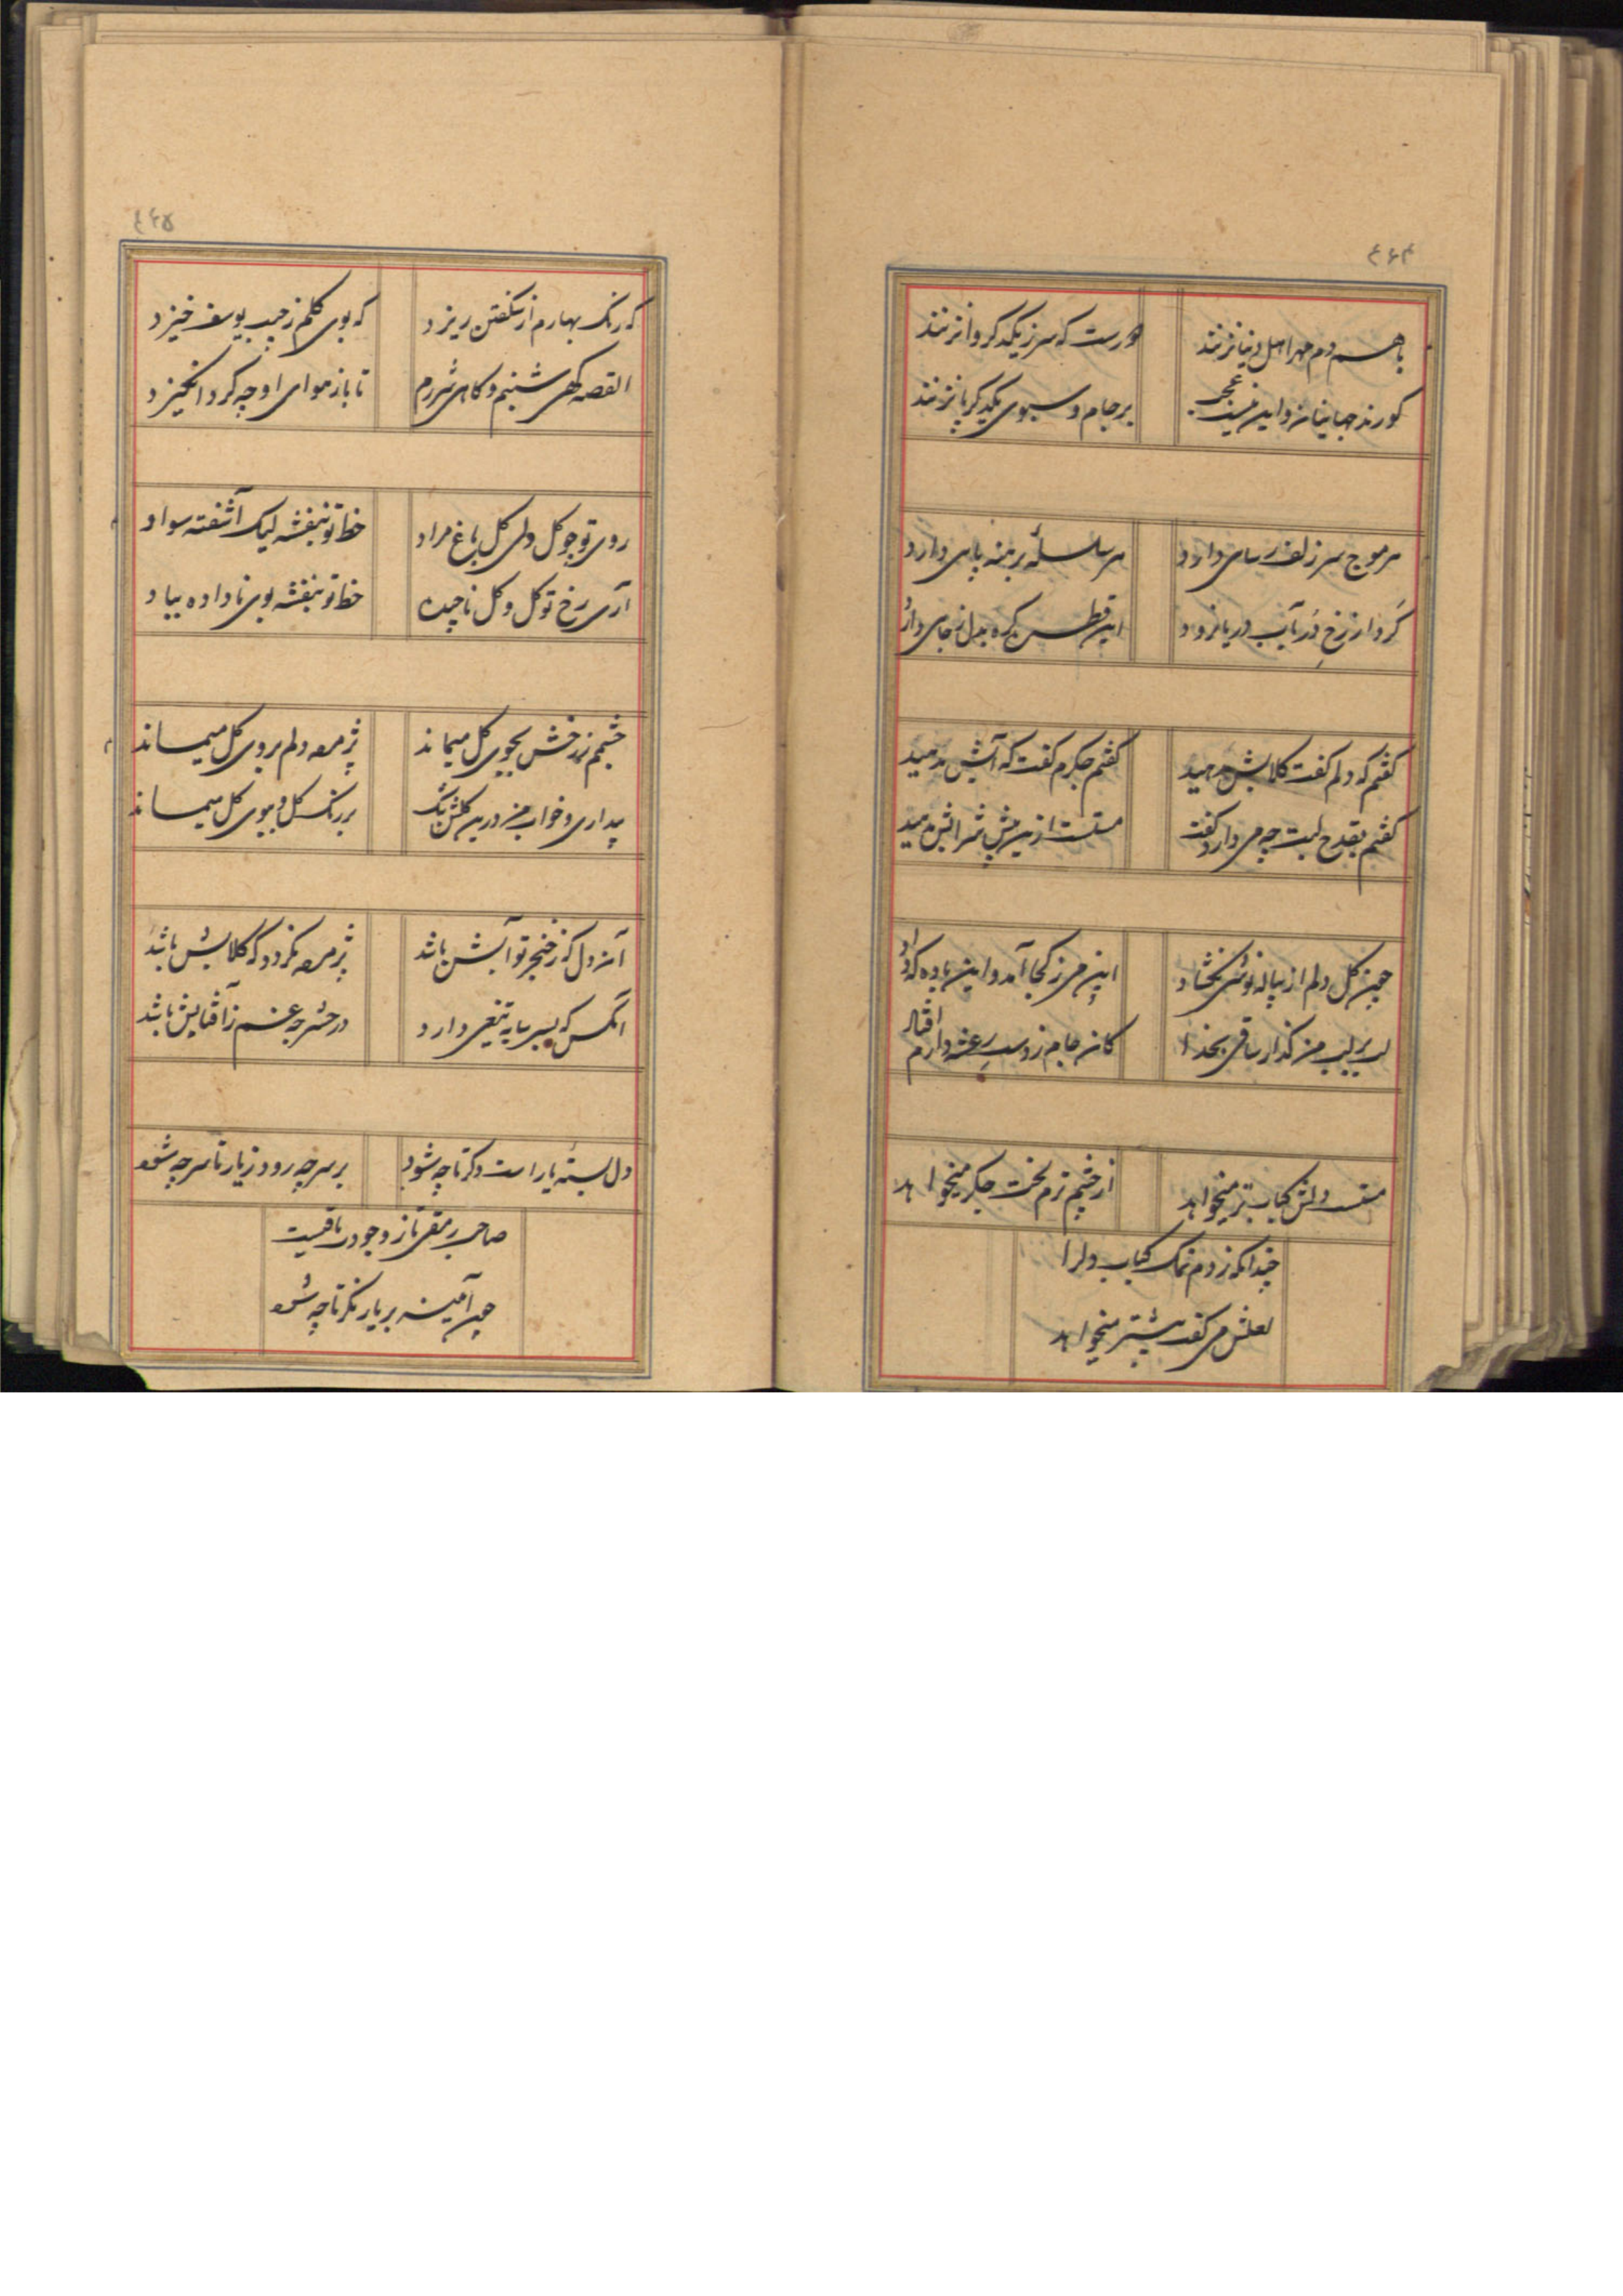 ۴۶۴
با هم دم مهر اهل دنیا نزنند
دورست که سر ز یکدگر وا نزنند
کورند جهانیان و این نیست عجب
بر جام و سبوی یکدگر پا نزنند
هر موج سر زلف رسای دارد
هر سلسلهٔ برهنه پای دارد
گرد از رخ در بآب دریا نرود
این قطره گره بدل ز جای دارد
گفتم که دلم گفت کلابش بدهید
گفتم جگرم گفت که آتش بدمید
گفتم بقدح لبت چه می دارد گفت
مستست ازین بیش شرابش مدهید
چون گل دلم از پیاله نوشی نگشاد
این می ز کجا آمد و این باده که داد
لب بر لب من گذار ساقی بخدا
کان جام ز دست رعشه دارم افتاد
مستست دلش کباب تر میخواهد
از چشم ترم لخت جگر میخواهد
چندانکه زدم نمک کباب دلرا
لعلش می گفت بیشتر میخواهد
۴۶۵
که رنگ بهارم از شکفتن ریزد
که بوی گلم ز جیب یوسف خیزد
القصه گهی شبنم و گاهی شررم
تا باز هوای او چه گرد انگیزد
روی تو چو گل ولی گل باغ مراد
خط تو بنفشه لیک آشفته سواد
آری رخ تو گل و گل ناچیده
خط تو بنفشه بوی نا داده بباد
چشمم ز رخش بجوی گل میماند
پژمرده دلم بروی گل میماند
بیداری و خواب من درین گلشن تنگ
بر رنگ گل و ببوی گل میماند
آن دل که ز خنجر تو آبش باشد
پژمرده نگردد که گلابش باشد
آنکس که بسر سایه تیغی دارد
در حشر چه غم ز آفتابش باشد
دل بستهٔ یار است دگر تا چه شود
بر سر چه رود ز یار تا سر چه شود
صاحب رمقی تا ز وجودت باقیست
چون آینه بر یار نگر تا چه شود